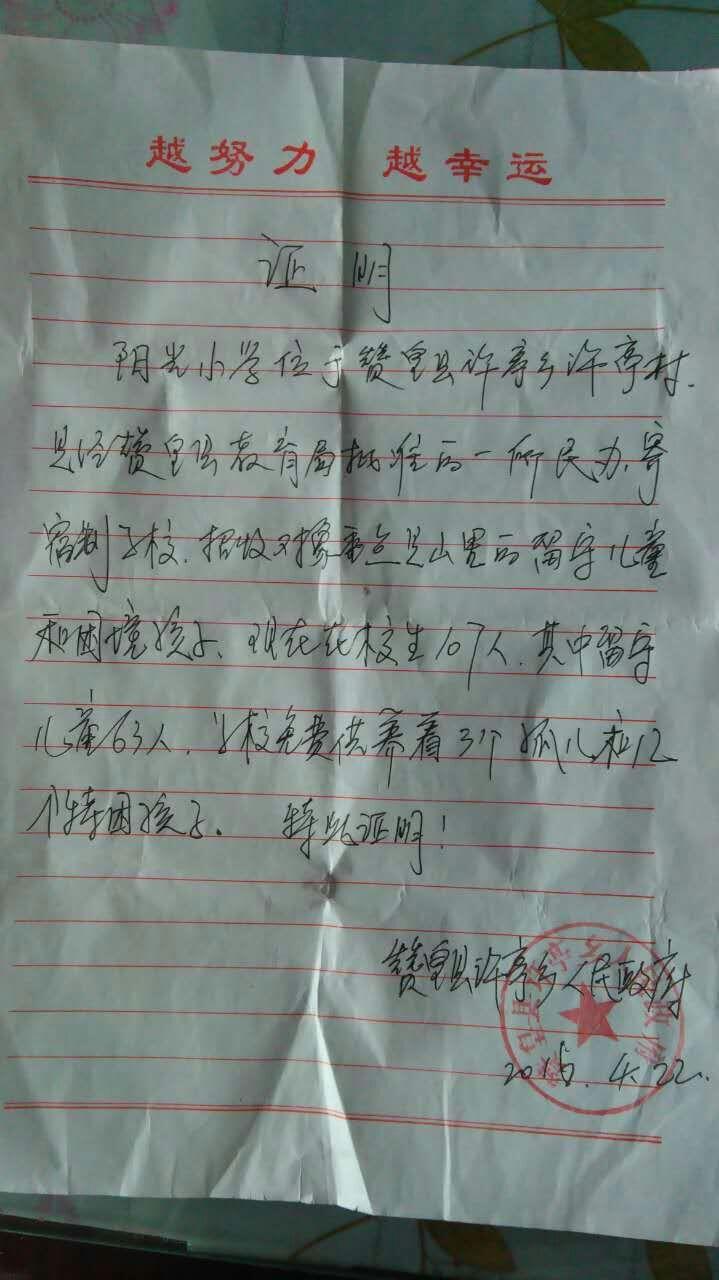 越努力 越幸运
证明
阳光小学位于赞皇县许亭乡许亭村.
是经赞皇县教育局批准的一所民办、寄
宿制学校.招收对象重点是山里的留守儿童
和困境孩子、现在在校生107人.其中留守
儿童63人,学校免费供养着3个孤儿和12
个特困孩子. 特此证明!
赞皇县许亭乡人民政府
4.22.